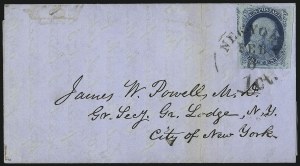 NEW YO
FEB
James W. Powell, M.D.
Gr. Secy. Gr. Lodge, N.Y.
City of New York